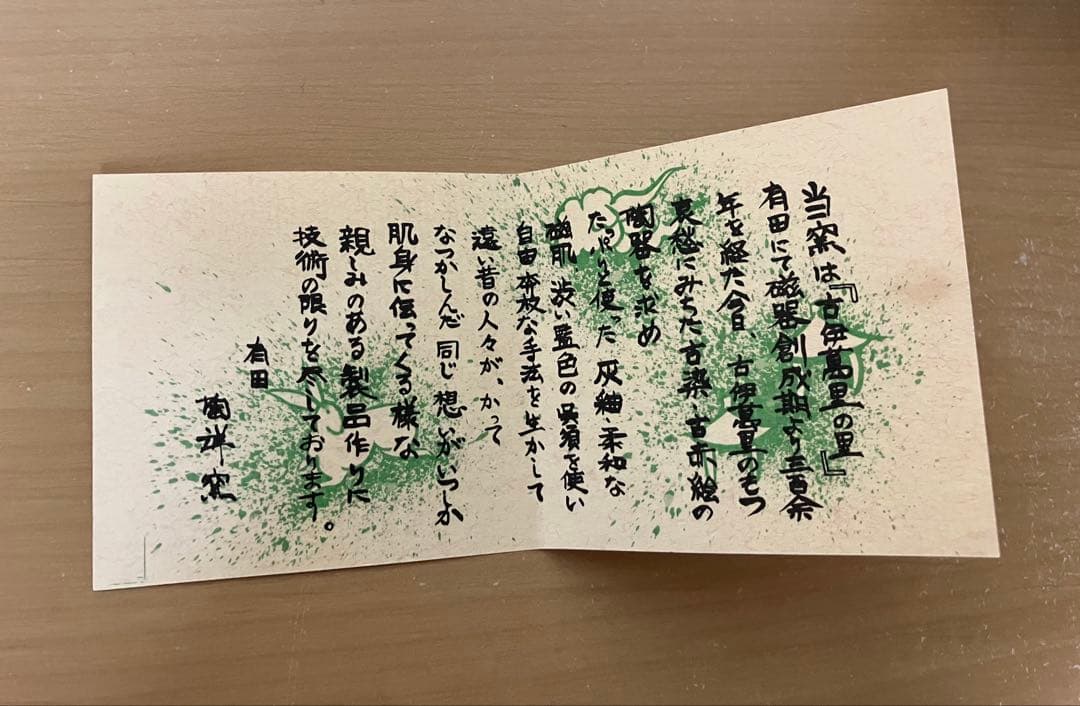 当窯は『古伊萬里の里』
有田にて磁器創成期より三百余
年を経た今日 古伊萬里のもつ
哀愁にみちた古染・古赤絵の
陶器を求め
たっぷりと使った 灰釉・柔和な
磁肌 渋い藍色の呉須を使い
自由奔放な手法を生かして
遠い昔の人々が、かって
なつかしんだ 同じ想いがいつしか
肌身に伝ってくる様な
親しみのある製品作りに
技術の限りを尽しております。
有田
陶祥窯